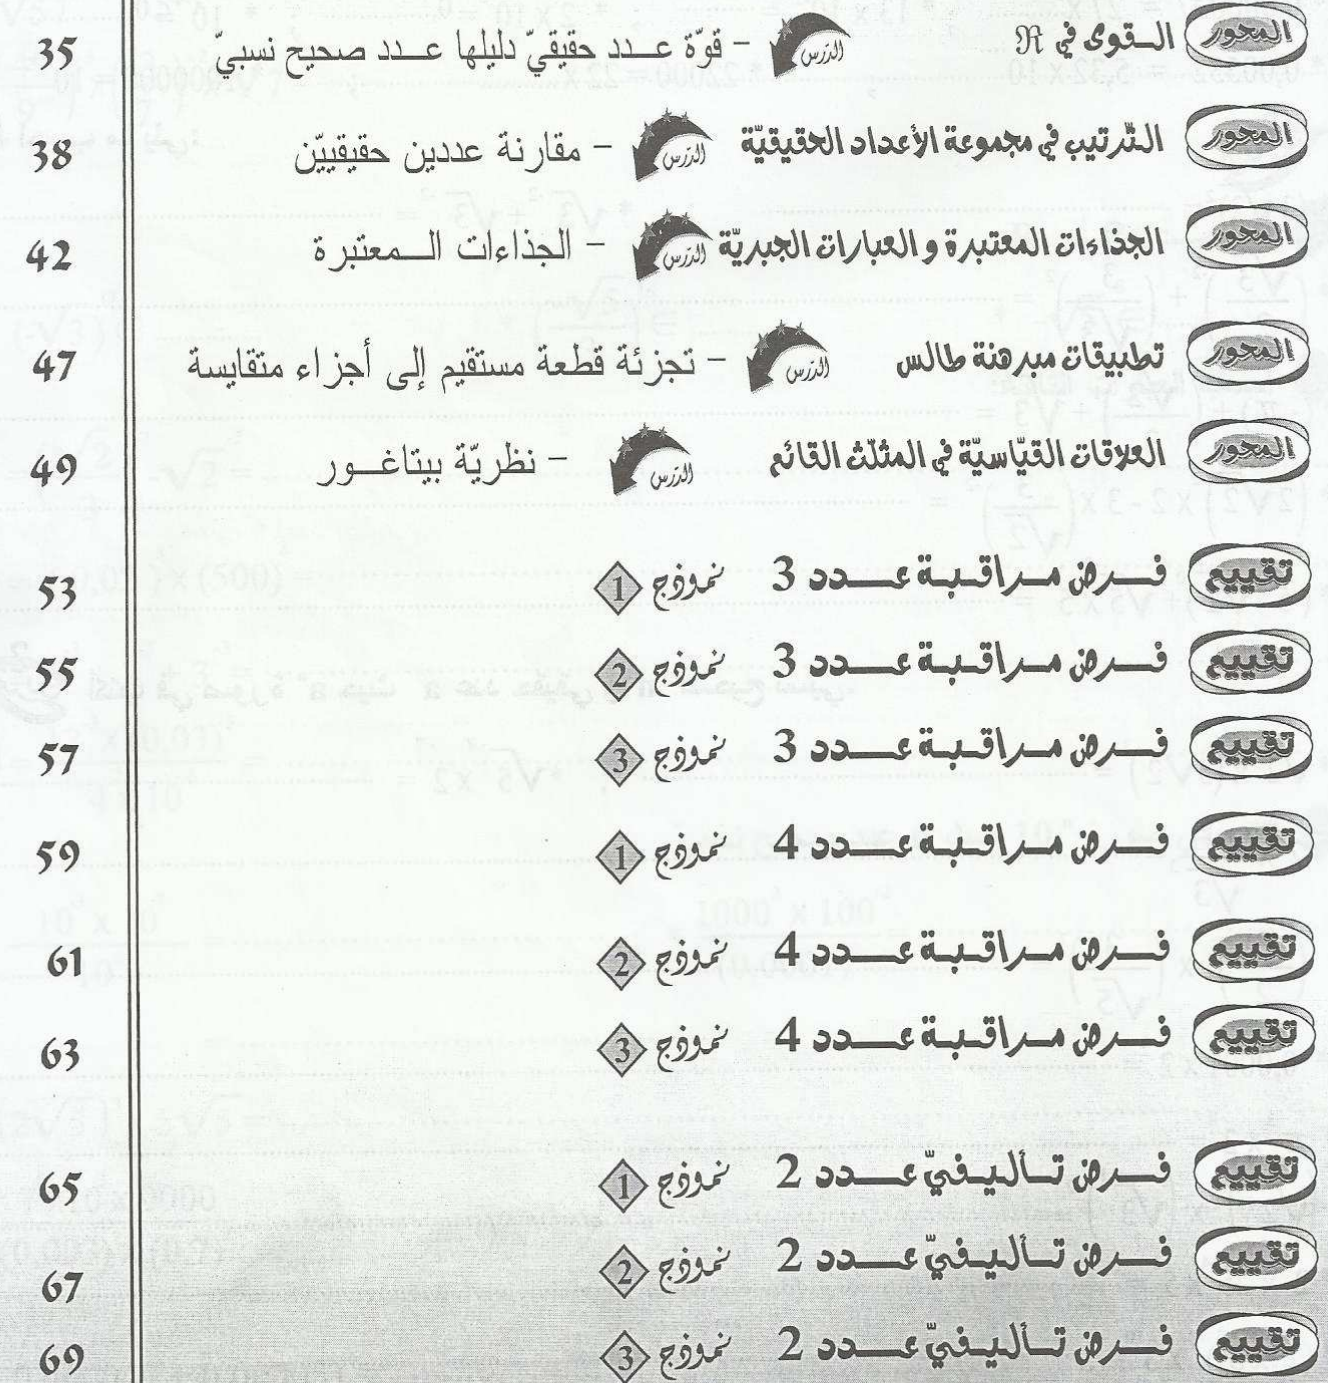 المحور القوى في ℜ الدرس - قوّة عدد حقيقيّ دليلها عدد صحيح نسبيّ 35
المحور التّرتيب في مجموعة الأعداد الحقيقيّة الدرس - مقارنة عددين حقيقييّن 38
المحور الجذاءات المعتبرة و العبارات الجبريّة الدرس - الجذاءات المعتبرة 42
المحور تطبيقات مبرهنة طالس الدرس - تجزئة قطعة مستقيم إلى أجزاء متقايسة 47
المحور العلاقات القيّاسيّة في المثلّث القائم الدرس - نظريّة بيتاغور 49
تقييم فرض مراقبة عدد 3 نموذج 1 53
تقييم فرض مراقبة عدد 3 نموذج 2 55
تقييم فرض مراقبة عدد 3 نموذج 3 57
تقييم فرض مراقبة عدد 4 نموذج 1 59
تقييم فرض مراقبة عدد 4 نموذج 2 61
تقييم فرض مراقبة عدد 4 نموذج 3 63
تقييم فرض تأليفيّ عدد 2 نموذج 1 65
تقييم فرض تأليفيّ عدد 2 نموذج 2 67
تقييم فرض تأليفيّ عدد 2 نموذج 3 69